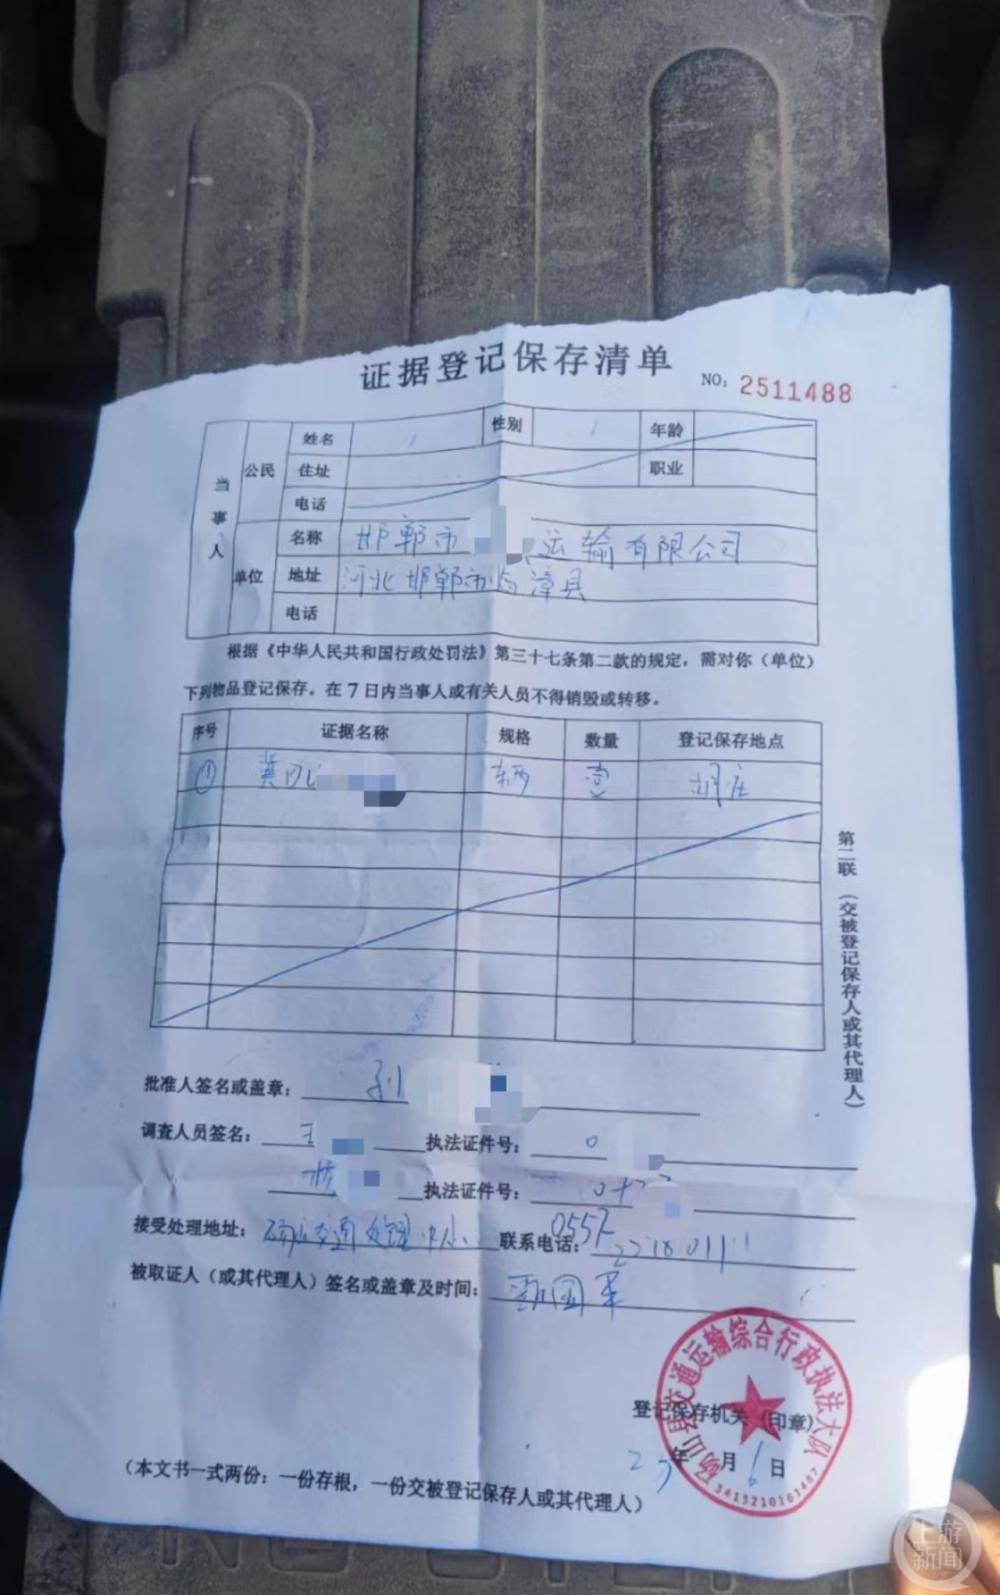 证据登记保存清单
NO: 2511488
当事人
公民
姓名 性别 年龄
住址 职业
电话
单位
名称 邯郸市 运输有限公司
地址 河北邯郸市临漳县
电话
根据《中华人民共和国行政处罚法》第三十七条第二款的规定，需对你（单位）
下列物品登记保存。在7日内当事人或有关人员不得销毁或转移。
序号 证据名称 规格 数量 登记保存地点
① 冀D 辆 壹
第二联（交被登记保存人或其代理人）
批准人签名或盖章：
调查人员签名：王 执法证件号：0
执法证件号：
接受处理地址：砀山交通处理中心 联系电话：0557
被取证人（或其代理人）签名或盖章及时间：
登记保存机关（印章）
年 月6日
砀山县交通运输综合行政执法大队
3415210161487
（本文书一式两份：一份存根，一份交被登记保存人或其代理人）
上游新闻